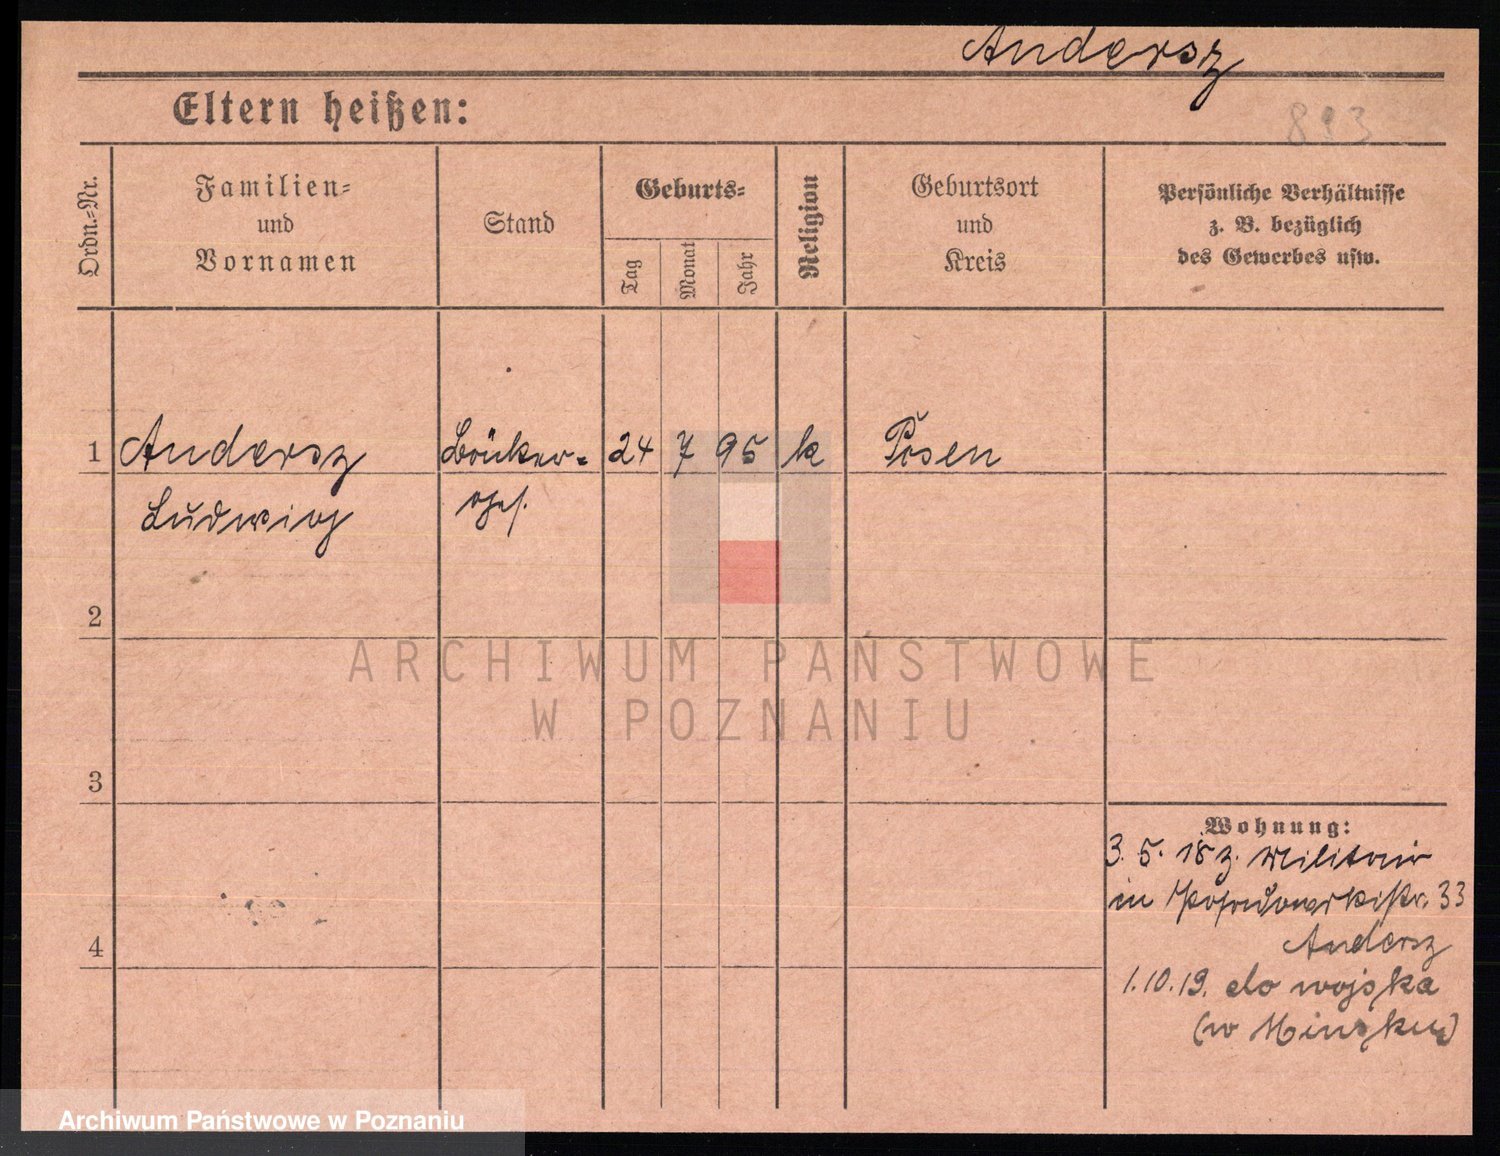 Andersz
Eltern heißen:
813
Ordn.-Nr.
Familien-
und
Vornamen
Stand
Geburts-
Tag
Monat
Jahr
Religion
Geburtsort
und
Kreis
Persönliche Verhältnisse
z. B. bezüglich
des Gewerbes usw.
1 Andersz Bäcker- 24 7 95 k Posen
Ludwig ges.
2
3
4
Wohnung:
3. 5. 18 z. Militär
in 33
Andersz
1.10.19. do wojska
(w Mińsku)
ARCHIWUM PAŃSTWOWE
W POZNANIU
Archiwum Państwowe w Poznaniu